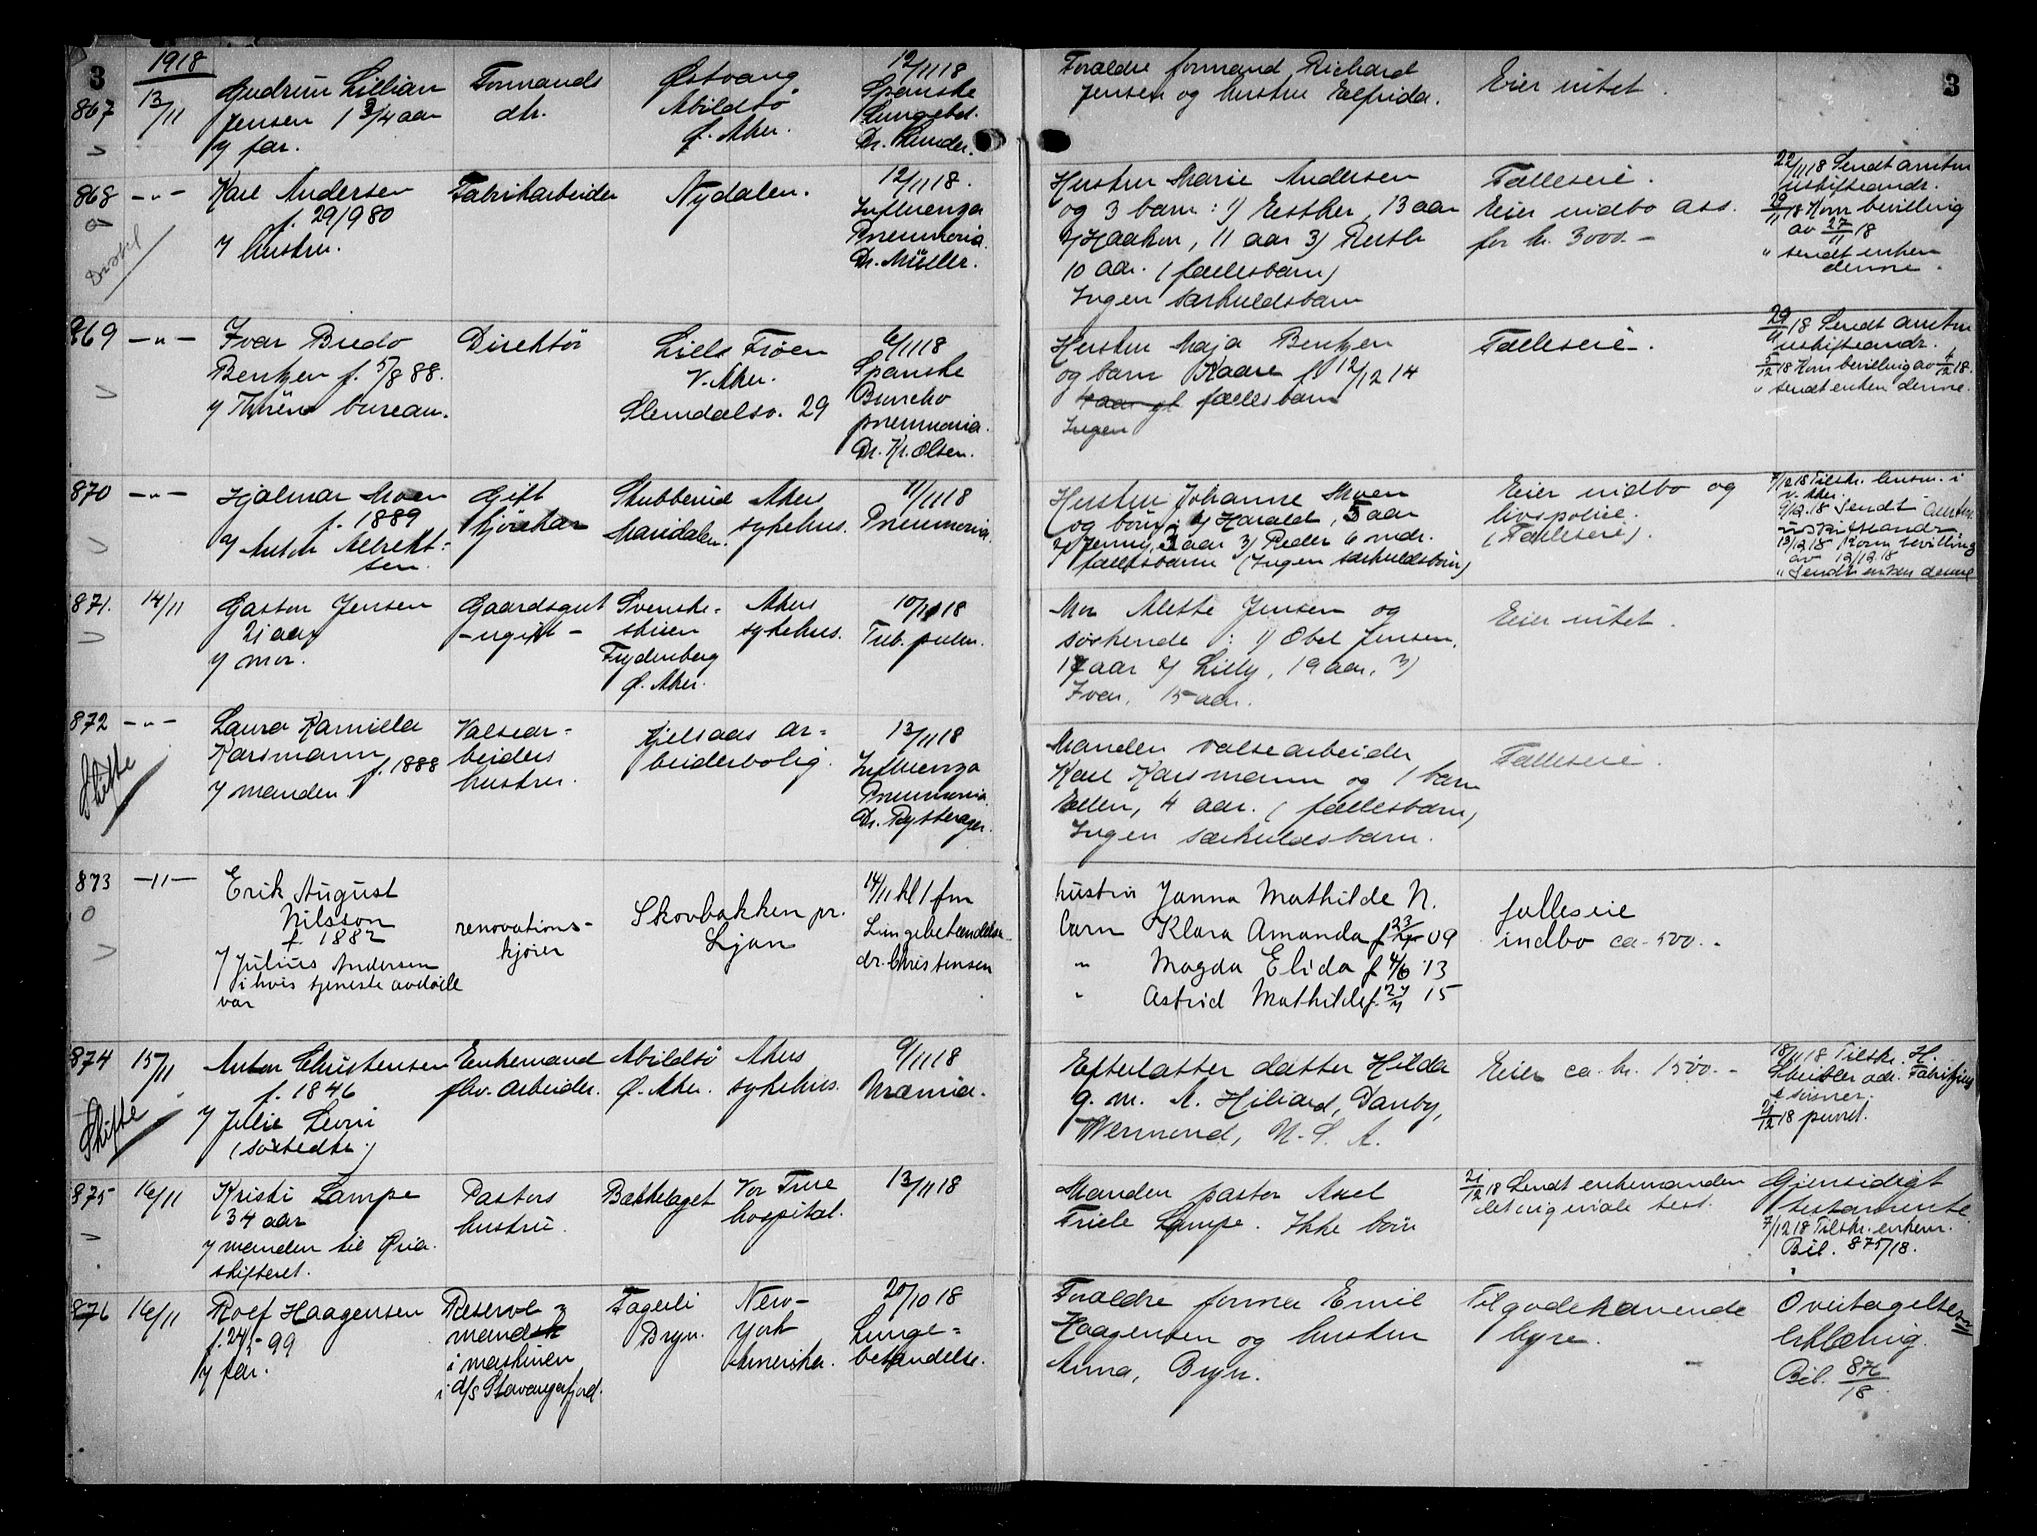 3
1918
867
13/11
Gudrun Lillian
Jensen 1 3/4 aar
v/ far.
Formands
dtr.
Østvang
Abildsø
Ø. Aker.
12/11 18
Spanske
Lungebet.
Dr.
Forældre formand Richard
Jensen og hustru Elfrida.
Eier intet.
3
868
-"-
Karl Andersen
f. 29/9 80
v/ hustru.
Fabrikarbeider
Nydalen.
12/11 18.
Influenza
Pneumonia.
Dr. Müller.
Hustru Marie Andersen
og 3 barn: 1) Esther, 13 aar
2) Haakon, 11 aar 3) Ruth
10 aar. (fællesbarn)
Ingen særkuldsbarn
Fælleseie.
Eier indbo ass.
for kr. 3000.-
22/11 18 Sendt amtm
uskifteandr.
29/11 18 Kom bevilling
av 27/11 18
" sendt enken
denne.
869
-"-
Ivar Bredo
Bentzen f. 5/8 88.
v/ bureau.
Direktør
Lille Frøen
V. Aker.
Slemdalsv. 29
6/11 18
Spanske
Broncho
pneumonia.
Dr. Kr. Olsen.
Hustru Maja Bentzen
og barn Kaare f. 12/12 14
4 aar gl fællesbarn
Ingen
Fælleseie.
29/11 18 Sendt amtm
uskifteandr.
5/12 18 Kom bevilling av 4/12 18.
" sendt enken denne.
870
-"-
Hjalmar Moen
f. 1889
v/ Anton Albrekt-
sen.
Gift
kjørekar
Skubberud
Maridalen.
Akers
sykehus.
11/11 18
Pneumonia.
Hustru Johanne Moen
og børn: 1) Harald, 5 aar
2) Jenny, 3 aar 3) Peder 6 mdr.
fællesbarn (Ingen særkuldsbørn)
Eier indbo og
livspolice.
(Fælleseie).
7/12 18 Tilskr. lensm. i
V. Aker.
9/12 18 Sendt amtm.
uskifteandr.
13/12 18 Kom bevilling
av 12/12 18
" Sendt enken denne
871.
14/11
Gaston Jensen
21 aar
v/ mor.
Gaardsgut
-ugift-
Svenske-
stuen
Frydenberg
Ø. Aker.
Akers
sykehus.
10/11 18
Tub. pulm.
Mor Alette Jensen og
søskende: 1) Obel Jensen,
17 aar 2) Lilly, 19 aar, 3)
Ivar, 15 aar.
Eier intet.
872
-"-
Skifte
Laura Kamilla
Karsmann
f. 1888
v/ manden.
Valsear-
beiders
hustru.
Kjelsaas ar-
beiderbolig.
13/11 18
Influenza
Pneumonia.
Dr. Rytterager.
Manden valsearbeider
Karl Karsmann og 1 barn
Ellen, 4 aar. (fællesbarn)
Ingen særkuldsbarn.
Fælleseie.
873
-11-
Erik August
Nilsson
f. 1882
v/ Julius Andersen
i hvis tjeneste avdøde
var
renovations-
kjører
Skovbakken pr.
Ljan
14/11 kl 1 fm
Lungebetændelse
dr. Christensen
hustru Janna Mathilde N.
barn Klara Amanda f 09
" Magda Elida f 4/6 13
" Astrid Mathilde f. 15
fælleseie
indbo ca. 500.-
874
15/11
Skifte
Anton Christensen
f. 1846
v/ Julie
(søsterdtr.)
Enkemand
fhv. arbeider.
Abildsø
Ø. Aker.
Akers
sykehus.
9/11 18
Uræmia.
Efterlatter datter Hilda
g. m. A. Hiliard, Danby,
Wermond, U. S. A.
Eier ca. kr. 1500.-
18/11 18 Tilskr. H.
adr.
18 purret.
875
16/11
Kristi Lampe
34 aar
v/ manden til Kria.
skifteret.
Pastors
hustru.
Bækkelaget
Vor Frue
hospital.
13/11 18
Manden pastor Axel
Friele Lampe. Ikke børn
21/12 18 Sendt enkemanden
det originale test.
Gjensidigt
testamente.
7/12 18 Tilskr. enkem.
Bil. 875/18.
876
16/11
Rolf Haagensen
f. 24/5 99
v/ far.
Reserve
mand
i maskinen
i d/s Stavangerfjord.
Fagerli
Bryn.
New-
York
Amerika.
20/10 18
Lunge-
betændelse.
Forældre former Emil
Haagensen og hustru
Anna, Bryn.
Tilgodehavende
hyre.
Overtagelses
erklæring.
Bil. 876/18.